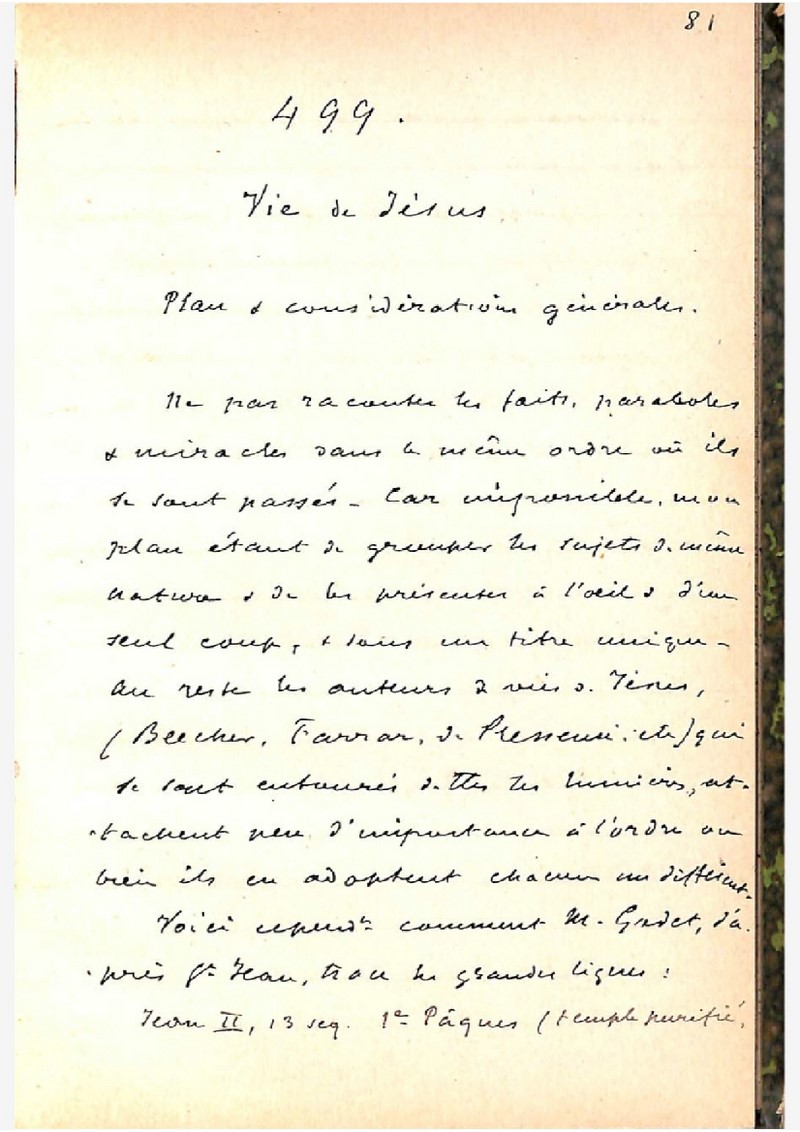 81
499.
Vie de Jésus
Plan & considérations générales.
Ne pas raconter les faits, paraboles
& miracles dans le même ordre où ils
se sont passés – Car impossible, mon
plan étant de grouper les sujets de même
nature & de les présenter à l'oeil & d'un
seul coup, & sous un titre unique –
Au reste les auteurs de vies de Jésus,
(Beecher, Farrar, de Pressensé, etc) qui
se sont entourés de ttes les lumières, at-
-tachent peu d'importance à l'ordre ou
bien ils en adoptent chacun un différent.
Voici cepend^t comment M. Godet, d'a-
-près S^t Jean, trace les grandes lignes :
Jean II, 13 seq. 1^e Pâques (temple purifié,